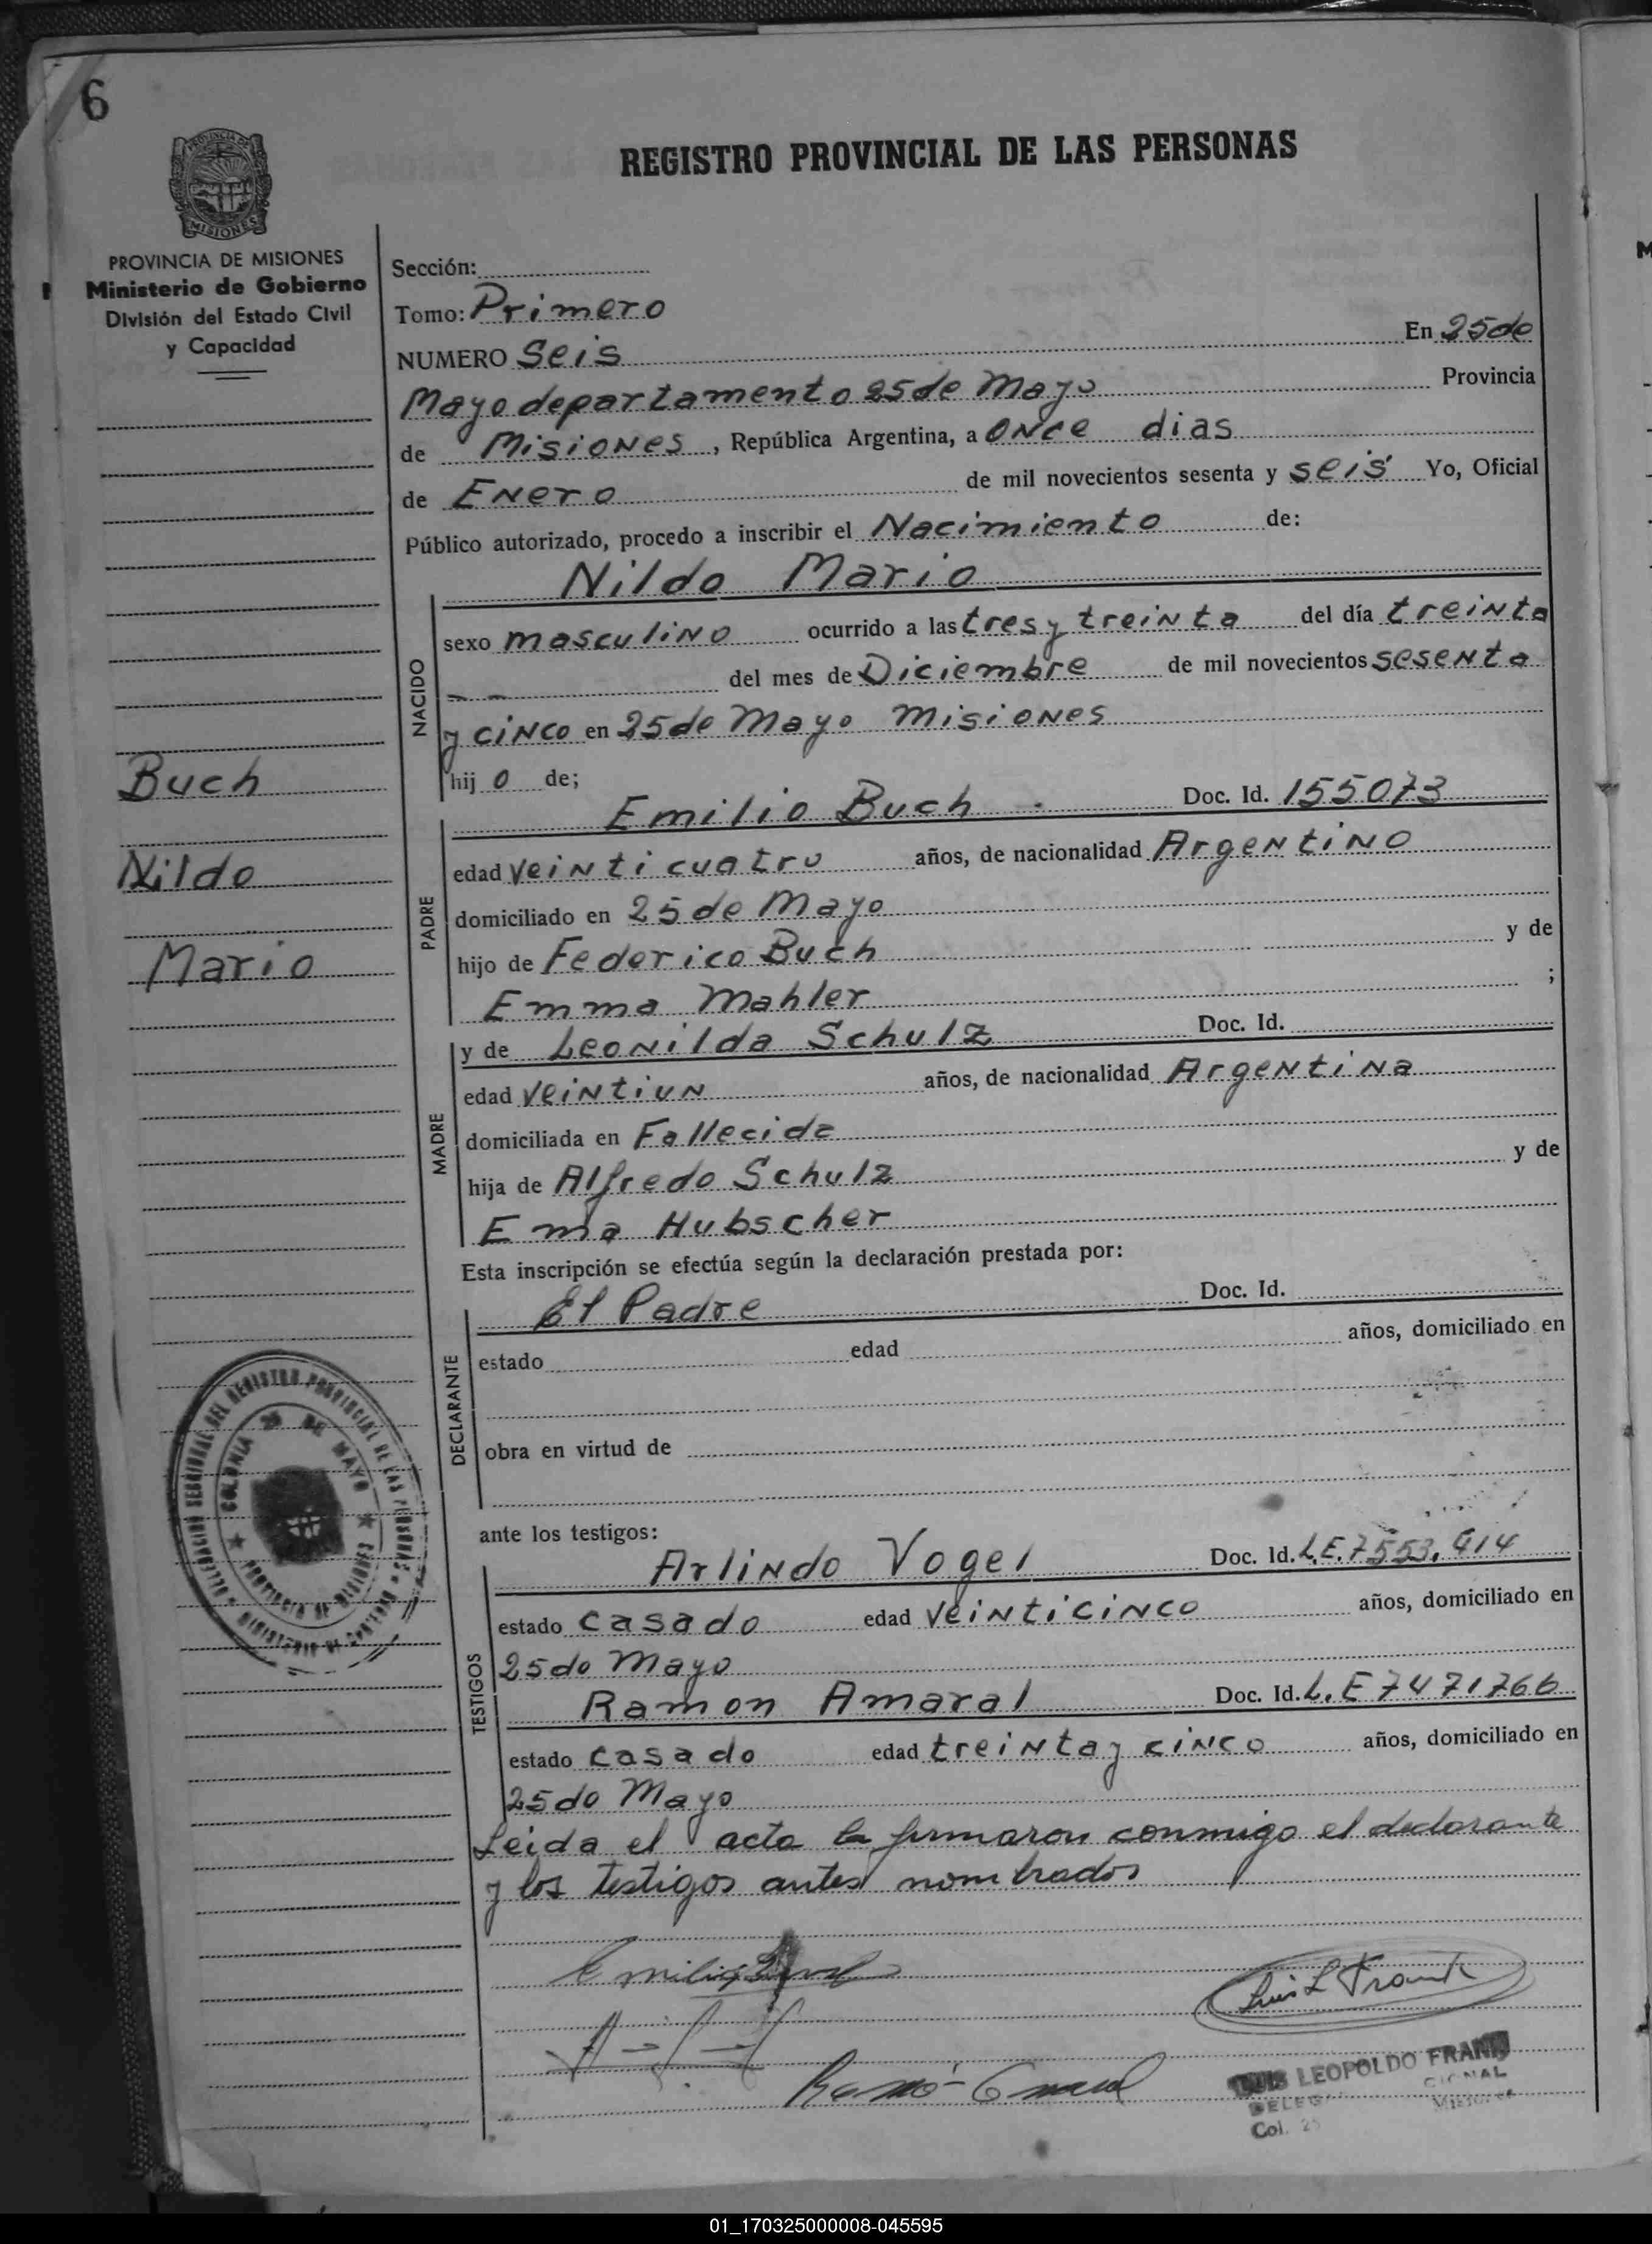 6
REGISTRO PROVINCIAL DE LAS PERSONAS
PROVINCIA DE
MISIONES
PROVINCIA DE MISIONES
Ministerio de Gobierno
División del Estado Civil
y Capacidad
Sección:
Tomo: Primero
NUMERO Seis En 25 de
Mayo departamento 25 de Mayo Provincia
de Misiones, República Argentina, a once dias
de Enero de mil novecientos sesenta y seis Yo, Oficial
Público autorizado, procedo a inscribir el Nacimiento de:
Nildo Mario
NACIDO
sexo masculino ocurrido a las tres y treinta del día treinta
— — del mes de Diciembre de mil novecientos sesenta
y cinco en 25 de Mayo Misiones
hij o de;
Buch
Nildo
Mario
Emilio Buch Doc. Id. 155073
PADRE
edad veinti cuatro años, de nacionalidad Argentino
domiciliado en 25 de Mayo
hijo de Federico Buch y de
Emma Mahler ;
y de Leonilda Schulz Doc. Id.
MADRE
edad veintiun años, de nacionalidad Argentina
domiciliada en Fallecida
hija de Alfredo Schulz y de
Ema Hubscher
Esta inscripción se efectúa según la declaración prestada por:
El Padre Doc. Id.
DECLARANTE
estado edad años, domiciliado en
obra en virtud de
DEL REGISTRO PROVINCIAL DE LAS PERSONAS
COLONIA 25 DE MAYO
PROVINCIA DE MISIONES
ante los testigos:
Arlindo Vogel Doc. Id. L.E. 7553.414
TESTIGOS
estado casado edad veinticinco años, domiciliado en
25 do Mayo
Ramon Amaral Doc. Id. L.E 7471766
estado casado edad treinta y cinco años, domiciliado en
25 do Mayo
Leida el acta la firmaron conmigo el declarante
y los testigos antes nombrados
Luis L Frank
LUIS LEOPOLDO FRANK
Col. 25
01_170325000008-045595